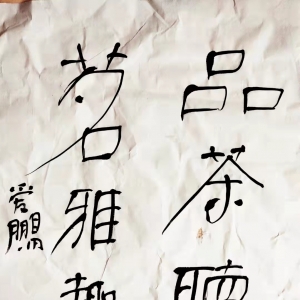 品茶聽
茗雅趣
爱鵬